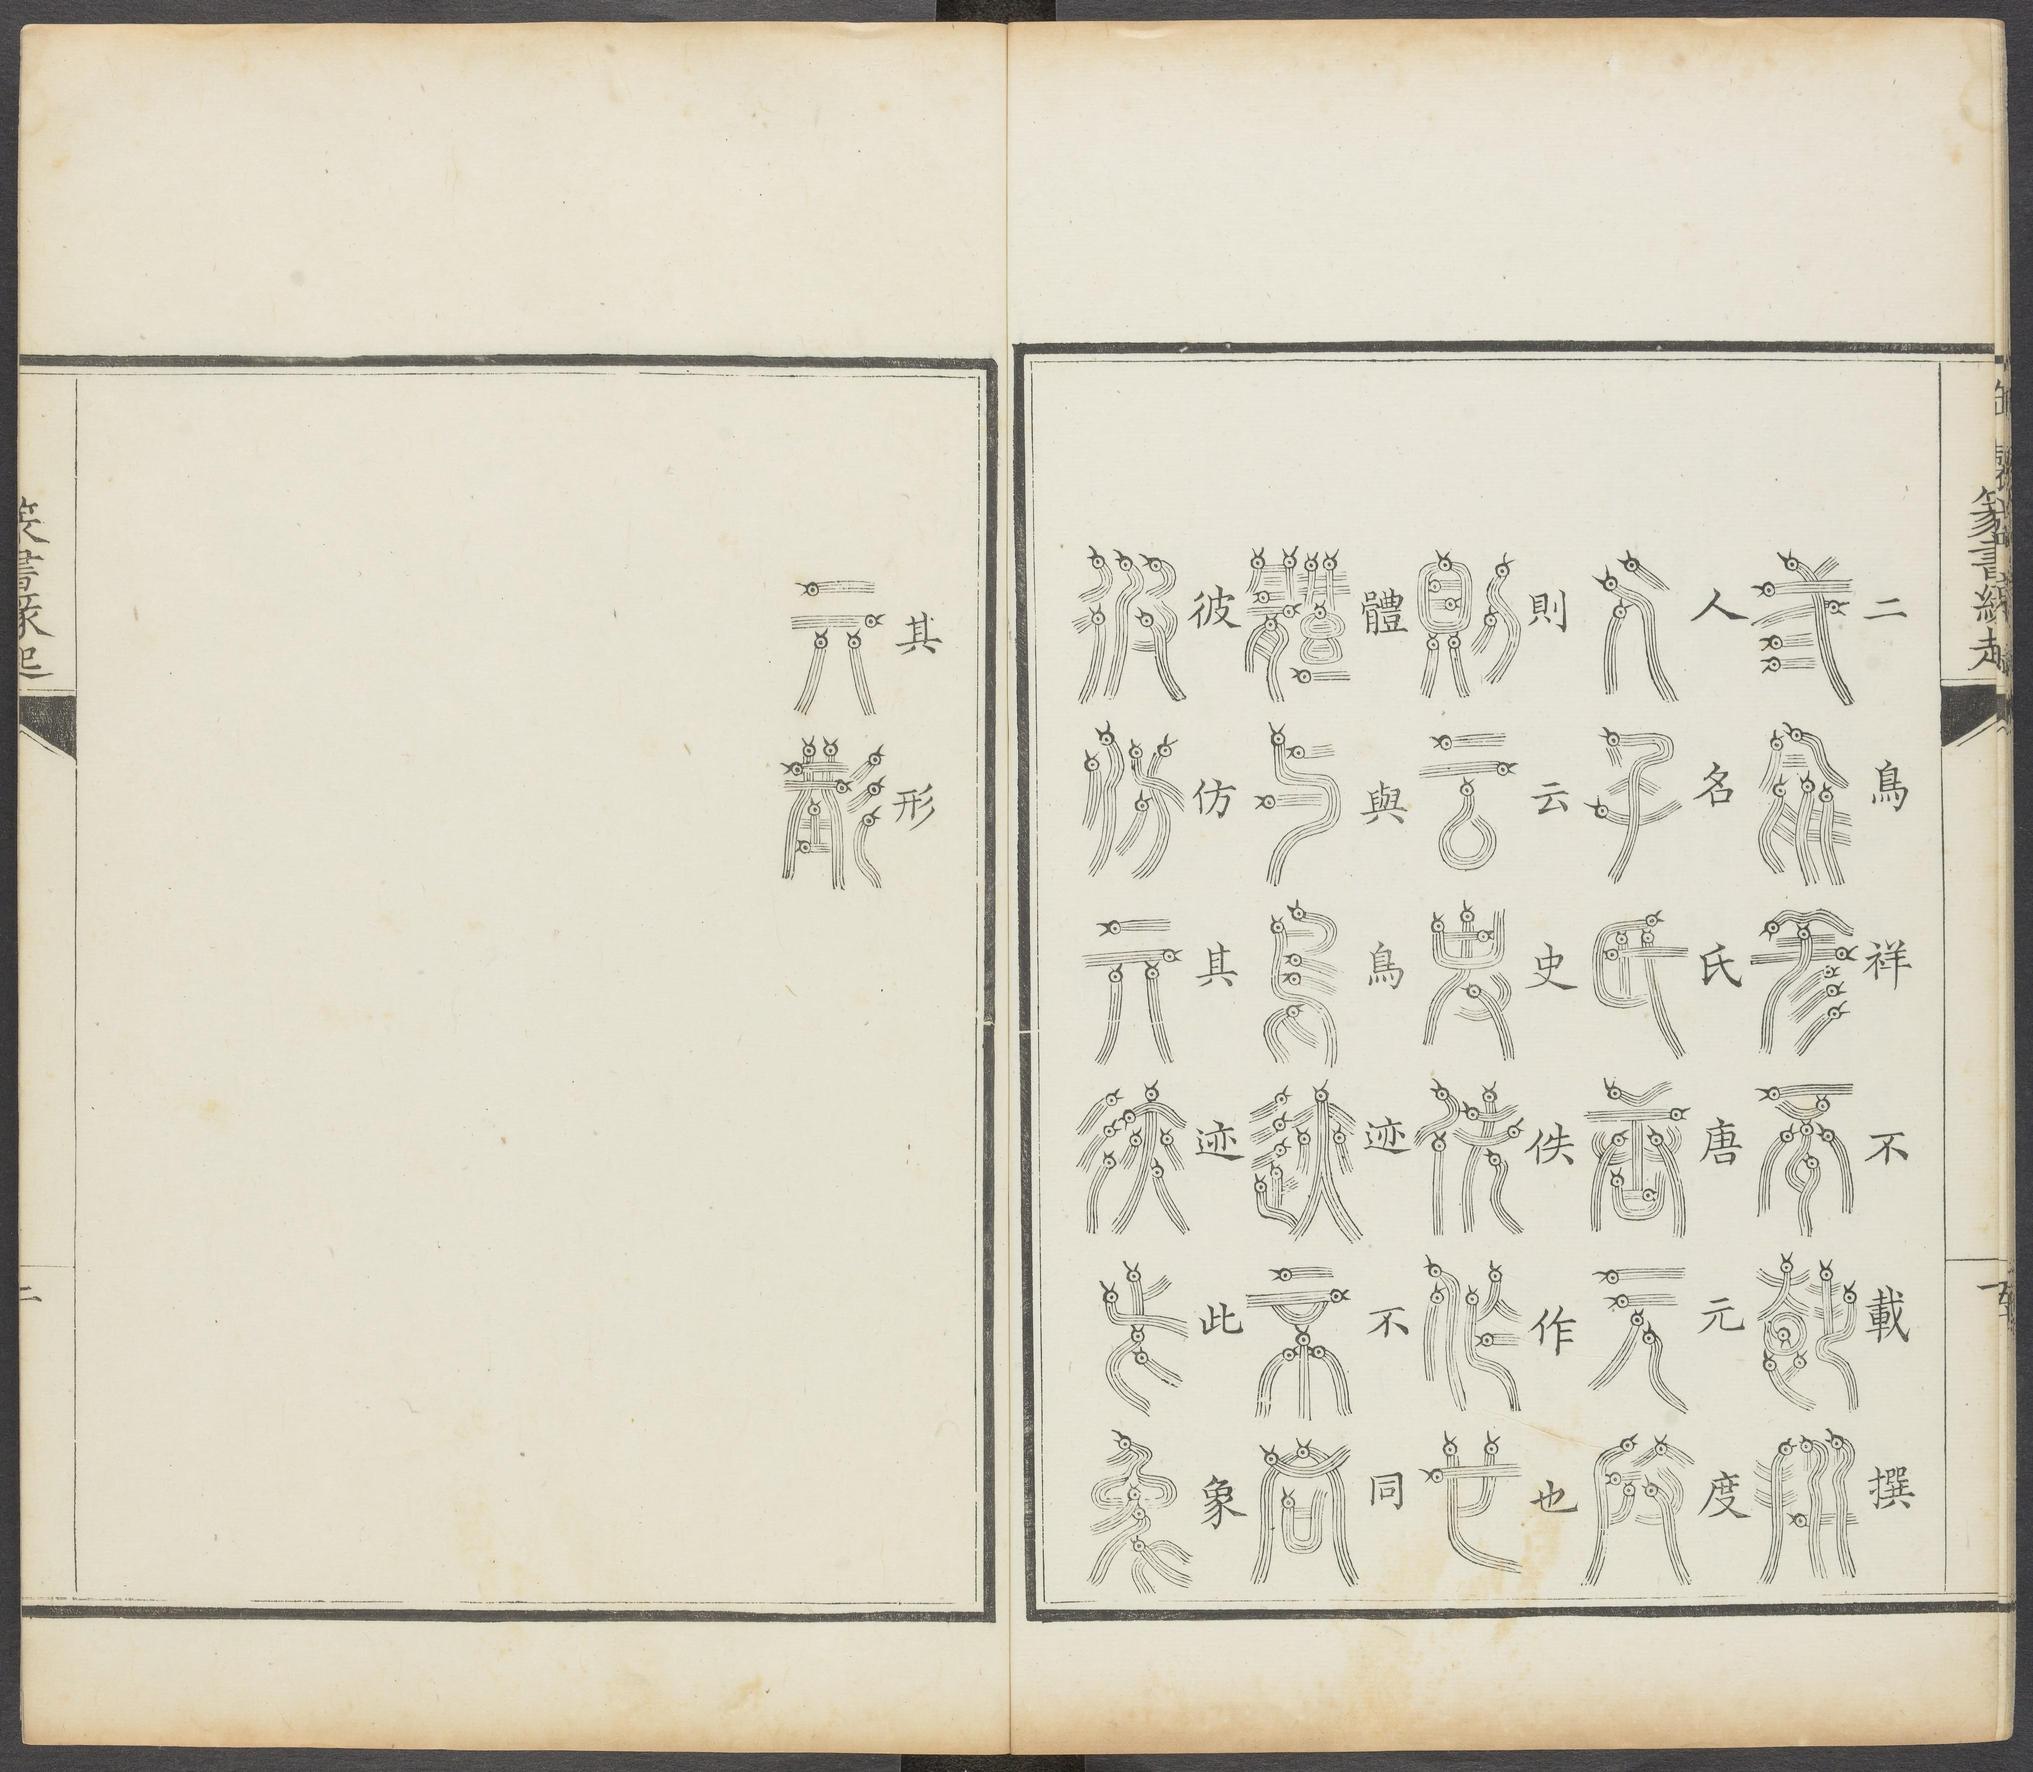 二鳥祥不載撰
人名氏唐元度
則云史佚作也
體與鳥迹不同
彼仿其迹此象
其形
篆書緣起
二